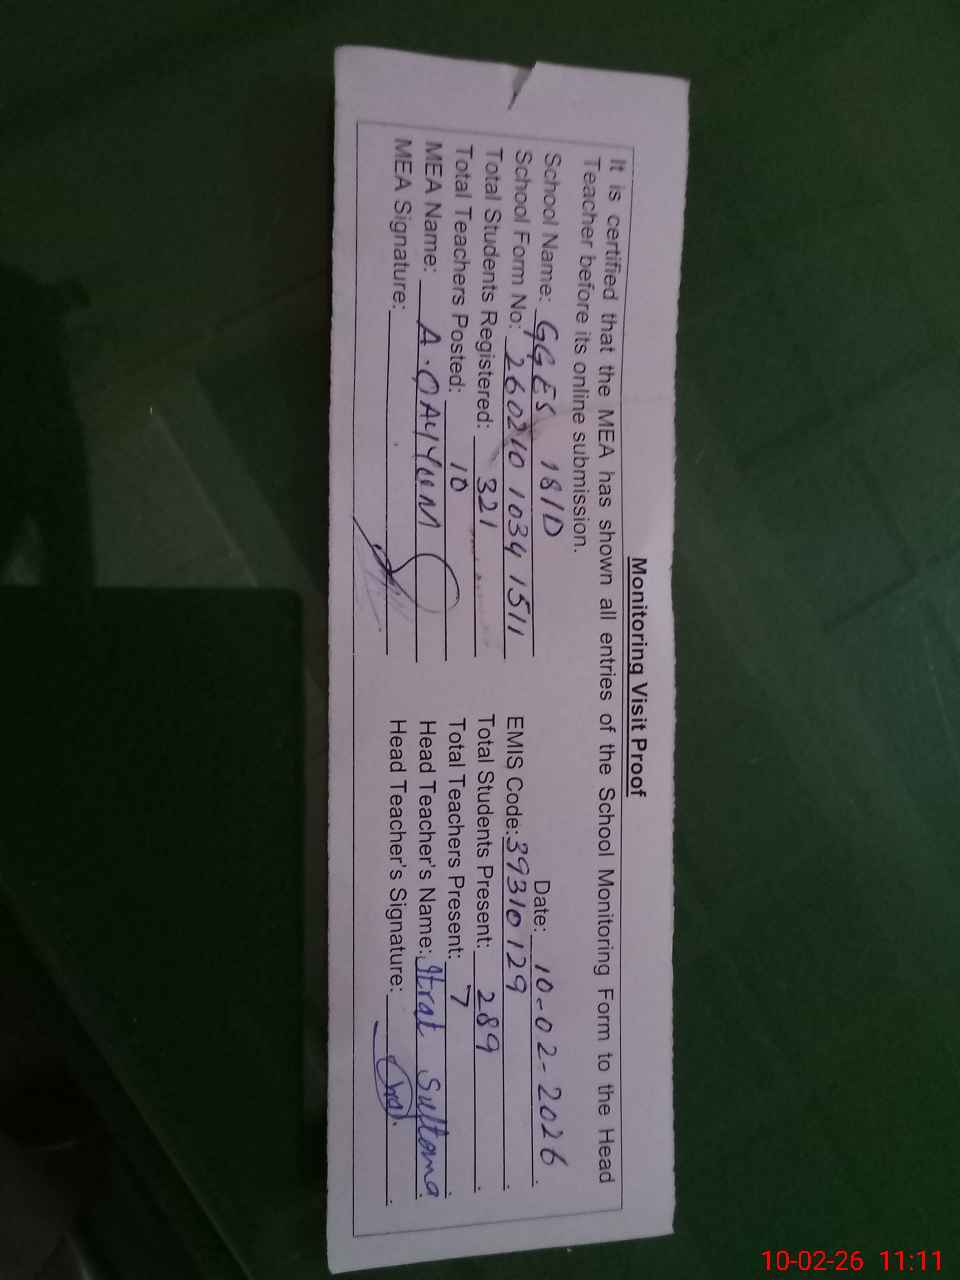 Monitoring Visit Proof
It is certified that the MEA has shown all entries of the School Monitoring Form to the Head
Teacher before its online submission.
School Name: GGES 181D Date: 10-02-2026
School Form No: 260210 1034 1511 EMIS Code: 39310129
Total Students Registered: 321 Total Students Present: 289
Total Teachers Posted: 10 Total Teachers Present: 7
MEA Name: A.QAYYUM Head Teacher's Name: Itrat Sultana
MEA Signature: Head Teacher's Signature:
10-02-26 11:11